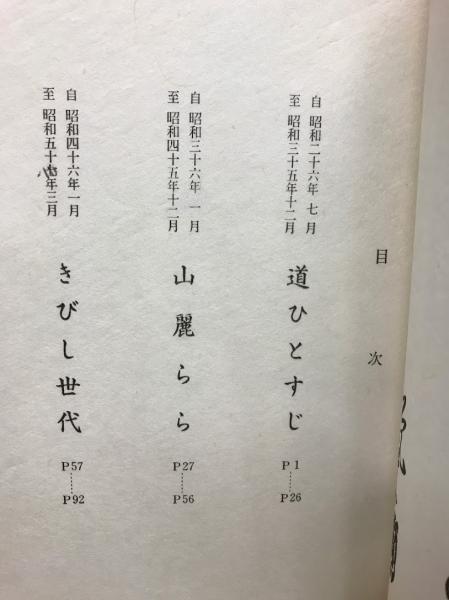 目次
自 昭和二十六年 七 月
至 昭和三十五年十二月
道ひとすじ
P1……P26
自 昭和三十六年 一 月
至 昭和四十五年十二月
山麗らら
P27……P56
自 昭和四十六年一月
至 昭和五十年三月
きびし世代
P57……P92